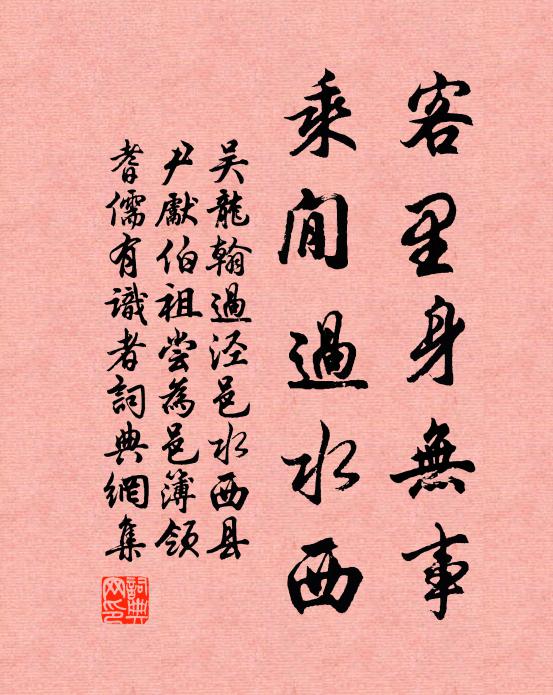 客里身無事
乘閒過水西
吴龍翰過泾邑水西县
尹獻伯祖尝為邑簿領
耆儒有識者詞典網集
詞典网印